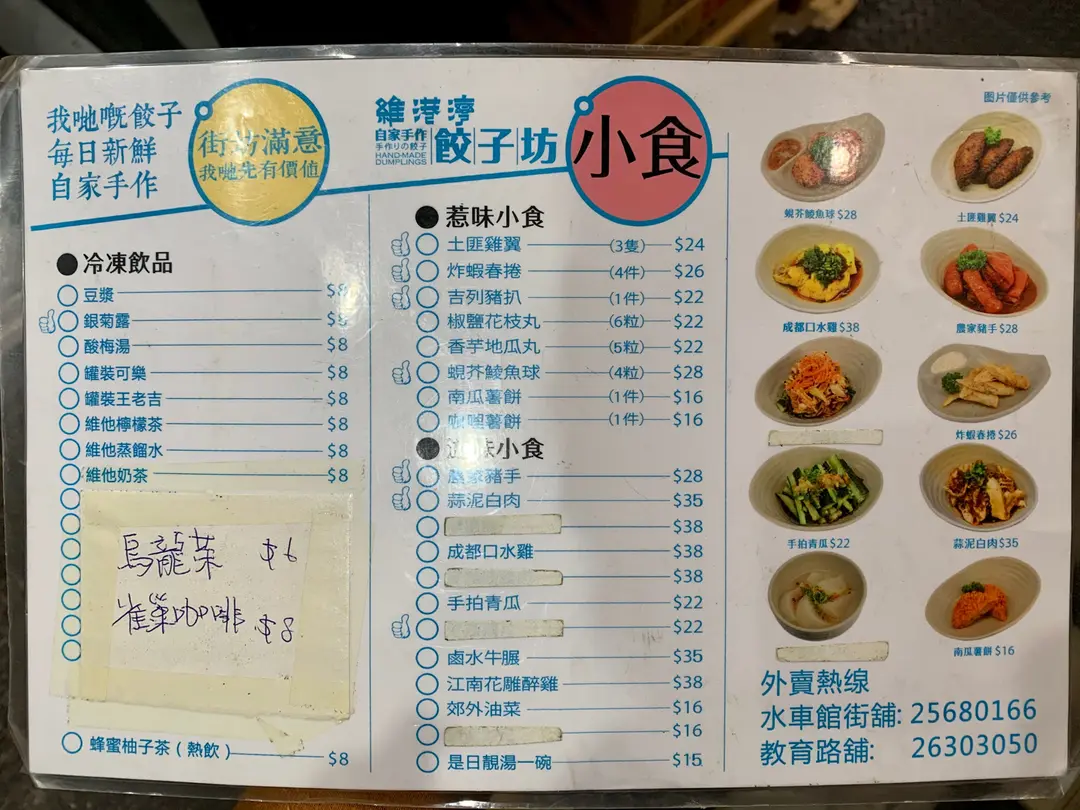 我哋嘅餃子
每日新鮮
自家手作
街坊滿意
我哋先有價值
維港灣
自家手作
手作りの餃子
HAND-MADE
DUMPLINGS
餃子坊
小食
冷凍飲品
豆漿 $8
銀菊露 $8
酸梅湯 $8
罐裝可樂 $8
罐裝王老吉 $8
維他檸檬茶 $8
維他蒸餾水 $8
維他奶茶 $8
烏龍茶 $6
雀巢咖啡 $8
蜂蜜柚子茶(熱飲) $8
惹味小食
土匪雞翼 (3隻) $24
炸蝦春捲 (4件) $26
吉列豬扒 (1件) $22
椒鹽花枝丸 (6粒) $22
香芋地瓜丸 (5粒) $22
蜆芥鯪魚球 (4粒) $28
南瓜薯餅 (1件) $16
咖喱薯餅 (1件) $16
味小食
農家豬手 $28
蒜泥白肉 $35
$38
成都口水雞 $38
$38
手拍青瓜 $22
$22
鹵水牛𦟌 $35
江南花雕醉雞 $38
郊外油菜 $16
$16
是日靚湯一碗 $15
图片僅供參考
蜆芥鯪魚球 $28
土匪雞翼 $24
成都口水雞 $38
農家豬手 $28
炸蝦春捲 $26
手拍青瓜 $22
蒜泥白肉 $35
南瓜薯餅 $16
外賣熱线
水車館街舖: 25680166
教育路舖: 26303050